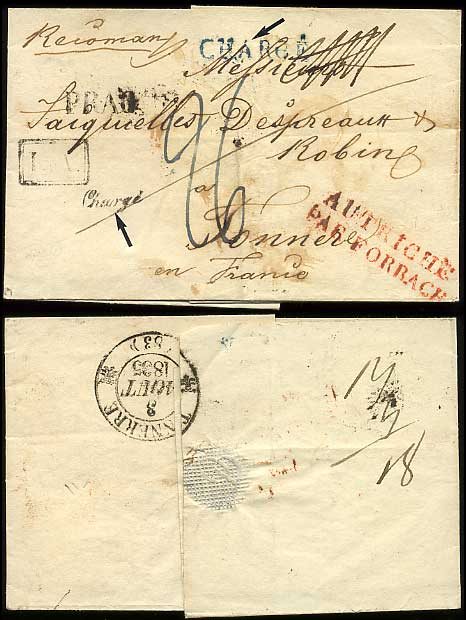 Recoman
CHARGÉ
Messieurs
PRAG
Jaiquielles Despreaux &
Robin
L.A.
Chargé
26
a
Tonnere
en France
AUTRICHE
PAR FORBACH
TONNERRE
3
AOUT
1835
(83)
18